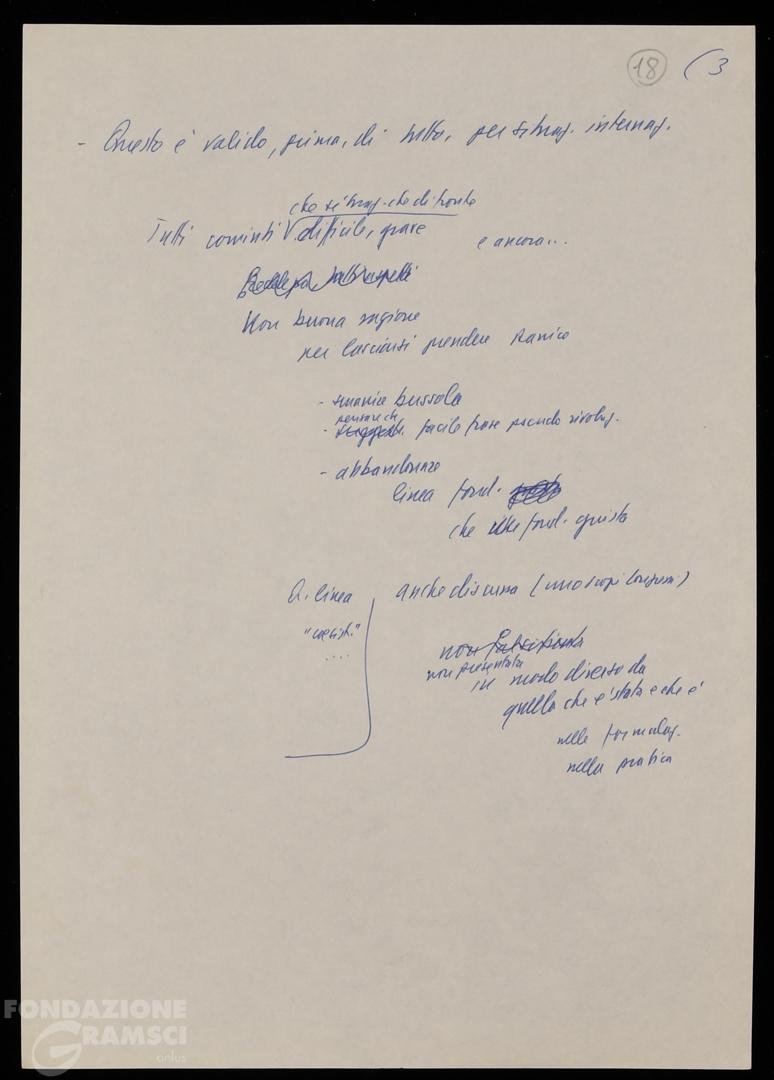 18 (3
- Questo è valido, prima, di tutto, per situaz. internaz.
che situaz. che di fronte
Tutti convinti difficile, grave
e ancora...
Non buona ragione
per lasciarsi prendere panico
- smarrire bussola
pensare che
facile frase pseudo rivoluz.
- abbandonare
linea fond.
che fond. giusta
Q. linea anche discussa
"coesist."
....
non presentata
in modo diverso da
quella che è stata e che è
nelle formulaz.
nella pratica
FONDAZIONE
GRAMSCI
onlus